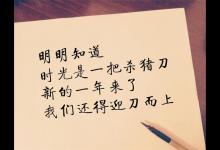 明明知道
时光是一把杀猪刀
新的一年来了
我们还得迎刃而上